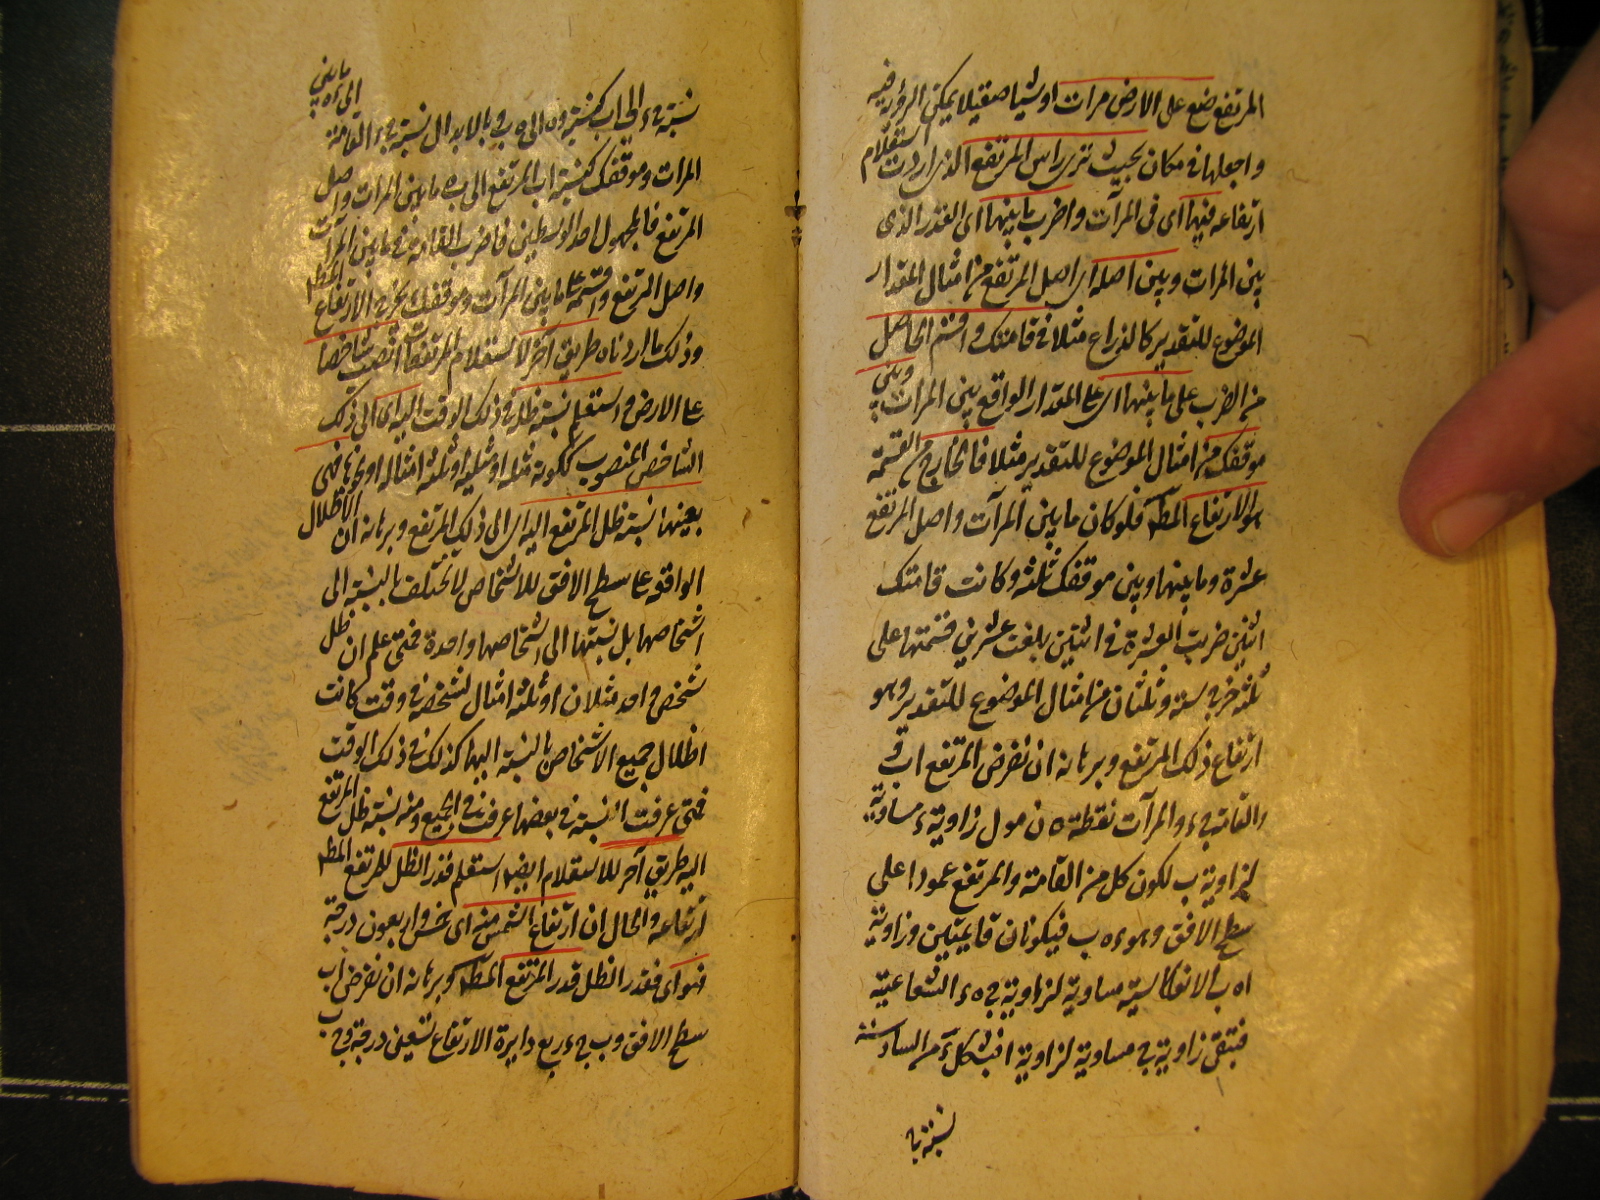 المرتفع ضع على الارض مرات او شيا صقيلا يمكن الرؤية فيه
واجعلها في مكان بحيث ترى راس المرتفع الذى اردت استعلام
ارتفاعه فيها اى فى المرآت واضرب ما بينها اى القدر الذى
بين المرات وبين اصله اى اصل المرتفع من امثال المقدار
الموضوع للتقدير كالذراع مثلا فى قامتك واقسم الحاصل
من الضرب على ما بينها اى على المقدار الواقع بين المرات وبين
موقفك من امثال الموضوع للتقدير مثلا فالخارج من القسمة
هو الارتفاع المط فلو كان ما بين المرآت واصل المرتفع
عشرة وما بينها وبين موقفك ثلثة وكانت قامتك
اثنين ضربت العشرة فى اثنين بلغت عشرين قسمتها على
ثلثة خرج ستة وثلثان من امثال الموضوع للتقدير وهو
ارتفاع ذلك المرتفع وبرهانه ان نفرض المرتفع اب
والقامة ج ء والمرآت نقطة ه زاوية ء مساوية
لزاوية ب لكون كل من القامة والمرتفع عمودا على
سطح الافق وهو ء ه ب فيكونان قائمتين وزاوية
ا ه ب الانعكاسية مساوية لزاوية ج ه ء الشعاعية
فتبقى زاوية ج مساوية لزاوية ا من السادسة
نسبة ج ء
نسبة ج ء الى اب كنسبة ء ه الى ه ب وبالابدال نسبة ج ء القامة الى ء ه ما بين
المرات وموقفك كنسبة اب المرتفع الى ب ه ما بين المرات واصل
المرتفع فالمجهول احد الوسطين فاضرب القامة فى ما بين المرآت
واصل المرتفع واقسمه على ما بين المرآت وموقفك يخرج الارتفاع المط
وذلك ما اردناه طريق آخر لاستعلام المرتفعات انصب شاخصا
على الارض واستعلم نسبة ظله فى ذلك الوقت اليه اى الى ذلك
الشاخص المنصوب ككونه مثله او مثليه او ثلثة امثاله او نحوها فهى
بعينها نسبة ظل المرتفع اليه اى الى ذلك المرتفع وبرهانه ان الاظلال
الواقعة على سطح الافق للاشخاص لا تختلف بالنسبة الى
اشخاصها بل نسبتها الى اشخاصها واحدة فمتى علم ان ظل
شخص واحد مثلان او ثلثة امثال لشخصه فى وقت كانت
اظلال جميع الاشخاص بالنسبة اليها كذلك فى ذلك الوقت
فمتى عرفت النسبة فى بعضها عرفت فى الجميع ومنه نسبة ظل المرتفع
اليه طريق آخر للاستعلام ايضا استعلم قدر الظل للمرتفع المط
ارتفاعه والحال ان ارتفاع الشمس مه اى خمس واربعون درجة
فهو اى فقدر الظل قدر المرتفع المط وبرهانه ان نفرض اب
سطح الافق و ب ج ء ربع دايرة الارتفاع تسعين درجة